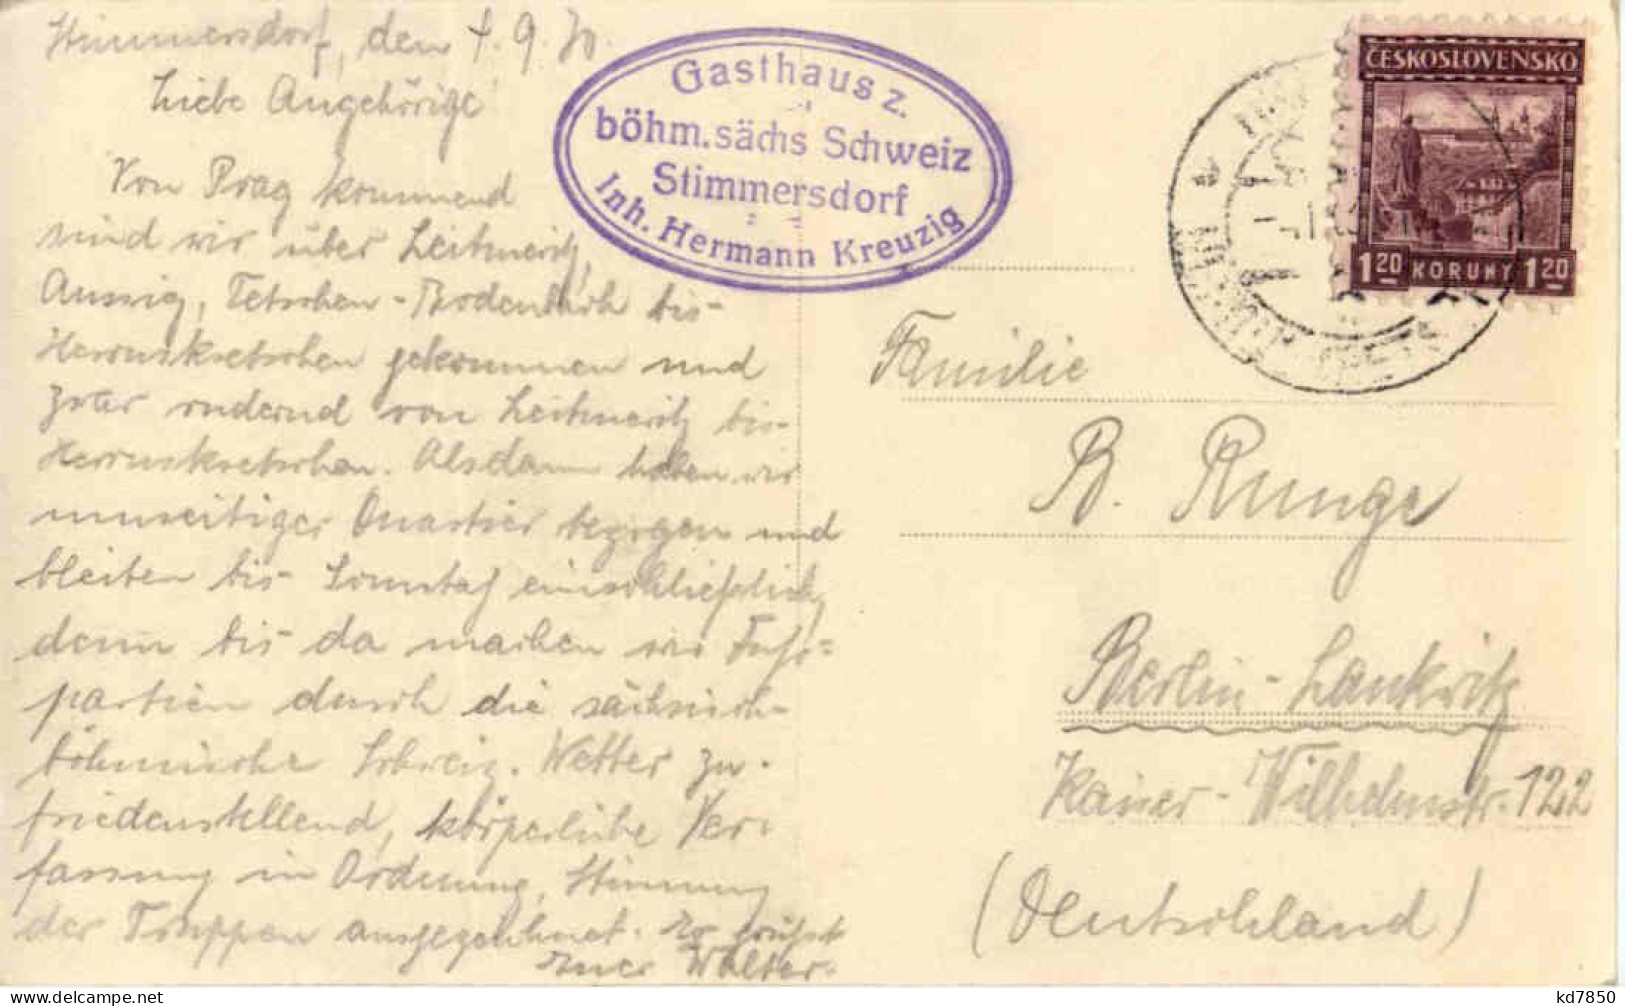 Stimmersdorf, den 4.9.30.
Liebe Angehörige!
Von Prag kommend
sind wir über Leitmeritz,
Aussig, Tetschen-Bodenbach bis
Herrnskretschen gekommen und
zwar rudernd von Leitmeritz bis
Herrnskretschen. Alsdann haben wir
unseitiger Quartier bezogen und
bleiben bis Sonntag einschließlich,
denn bis da machen wir Fuß-
partien durch die sächsisch-
böhmische Schweiz. Wetter zu-
friedenstellend, körperliche Ver-
fassung in Ordnung, Stimmung
der Truppen ausgezeichnet. Es grüßt
Euer Walter.
Gasthaus z.
böhm. sächs Schweiz
Stimmersdorf
Inh. Hermann Kreuzig
ČESKOSLOVENSKO
1 20 KORUNY 1 20
Familie
B. Runge
Berlin-Lankwitz
Kaiser-Wilhelmstr. 122
(Deutschland)
kd7850